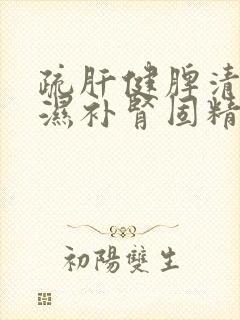 疏肝健脾清
濕补腎固精
初陽雙生